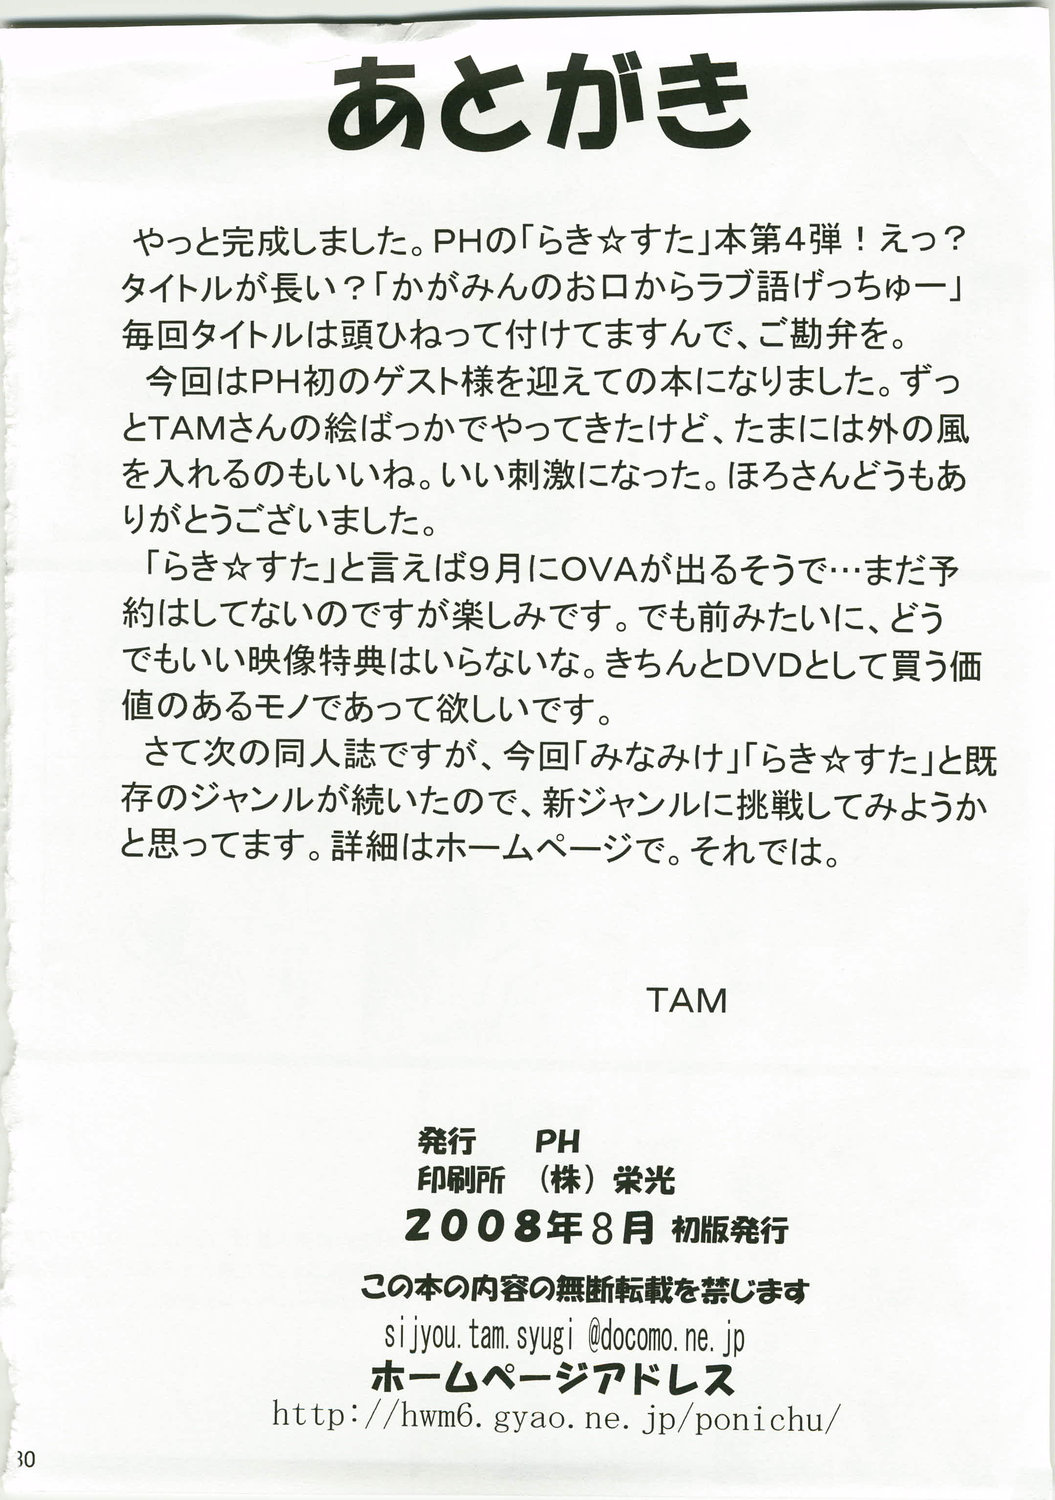 あとがき
やっと完成しました。PHの「らき☆すた」本第4弾！えっ？
タイトルが長い？「かがみんのお口からラブ語げっちゅー」
毎回タイトルは頭ひねって付けてますんで、ご勘弁を。
今回はPH初のゲスト様を迎えての本になりました。ずっ
とTAMさんの絵ばっかでやってきたけど、たまには外の風
を入れるのもいいね。いい刺激になった。ほろさんどうもあ
りがとうございました。
「らき☆すた」と言えば9月にOVAが出るそうで…まだ予
約はしてないのですが楽しみです。でも前みたいに、どう
でもいい映像特典はいらないな。きちんとDVDとして買う価
値のあるモノであって欲しいです。
さて次の同人誌ですが、今回「みなみけ」「らき☆すた」と既
存のジャンルが続いたので、新ジャンルに挑戦してみようか
と思ってます。詳細はホームページで。それでは。
TAM
発行　　PH
印刷所　（株）栄光
2008年8月 初版発行
この本の内容の無断転載を禁じます
sijyou.tam.syugi@docomo.ne.jp
ホームページアドレス
http://hwm6.gyao.ne.jp/ponichu/
30